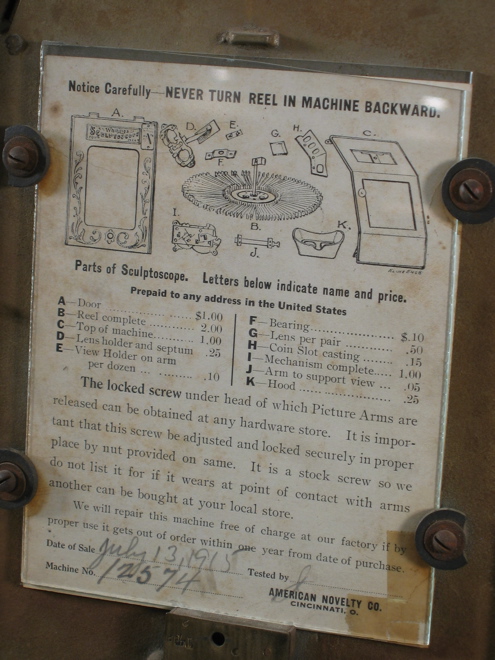 Notice Carefully—NEVER TURN REEL IN MACHINE BACKWARD.
A.
D.
E.
F.
G.
H.
C.
B.
I.
J.
K.
Parts of Sculptoscope. Letters below indicate name and price.
Prepaid to any address in the United States
A—Door $1.00
B—Reel complete 2.00
C—Top of machine 1.00
D—Lens holder and septum .25
E—View Holder on arm
per dozen .10
F—Bearing $.10
G—Lens per pair .50
H—Coin Slot casting .15
I—Mechanism complete 1.00
J—Arm to support view .05
K—Hood .25
The locked screw under head of which Picture Arms are
released can be obtained at any hardware store. It is impor-
tant that this screw be adjusted and locked securely in proper
place by nut provided on same. It is a stock screw so we
do not list it for if it wears at point of contact with arms
another can be bought at your local store.
We will repair this machine free of charge at our factory if by
proper use it gets out of order within one year from date of purchase.
Date of Sale July 13, 1915
Machine No. 12574
Tested by
AMERICAN NOVELTY CO.
CINCINNATI, O.